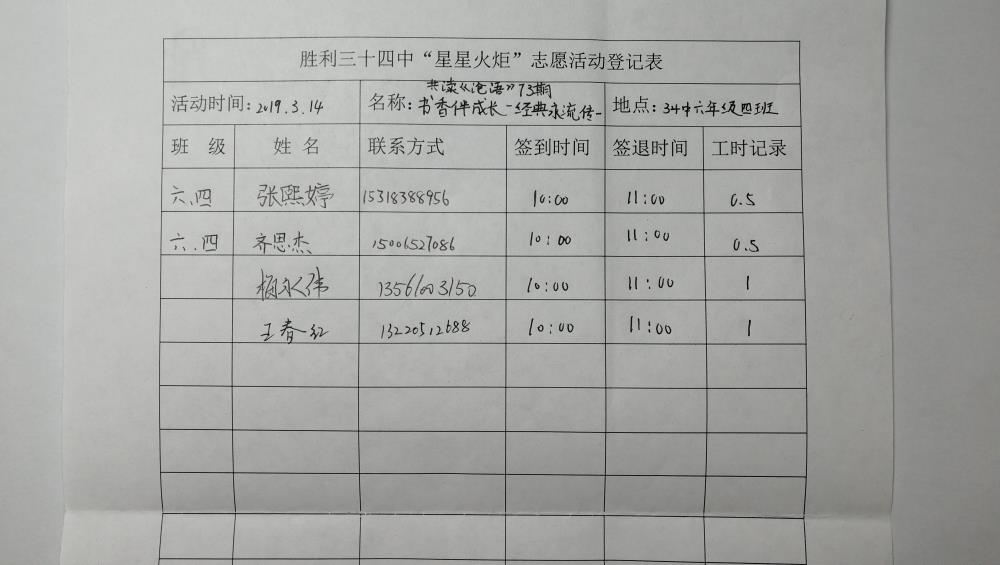 胜利三十四中“星星火炬”志愿活动登记表
共读《论语》73期
活动时间：2019.3.14 名称：书香伴成长-经典永流传- 地点：34中六年级四班
班 级 姓 名 联系方式 签到时间 签退时间 工时记录
六.四 张熙婷 15318388956 10:00 11:00 0.5
六.四 齐思杰 15006527086 10:00 11:00 0.5
杨永伟 13561003150 10:00 11:00 1
王春红 13220512688 10:00 11:00 1